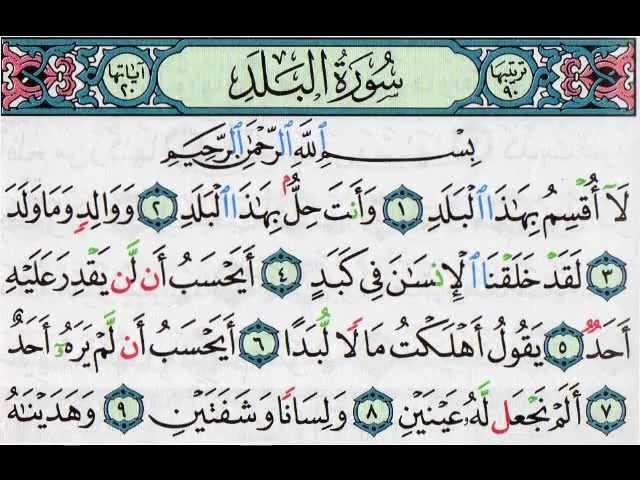 ترتيبها ٩٠ سُورَةُ الْبَلَدِ آياتها ٢٠
بِسْمِ ٱللَّهِ ٱلرَّحْمَٰنِ ٱلرَّحِيمِ
لَآ أُقْسِمُ بِهَٰذَا ٱلْبَلَدِ ١ وَأَنتَ حِلٌّۢ بِهَٰذَا ٱلْبَلَدِ ٢ وَوَالِدٍ وَمَا وَلَدَ
٣ لَقَدْ خَلَقْنَا ٱلْإِنسَٰنَ فِى كَبَدٍ ٤ أَيَحْسَبُ أَن لَّن يَقْدِرَ عَلَيْهِ
أَحَدٌ ٥ يَقُولُ أَهْلَكْتُ مَالًا لُّبَدًا ٦ أَيَحْسَبُ أَن لَّمْ يَرَهُۥٓ أَحَدٌ
٧ أَلَمْ نَجْعَل لَّهُۥ عَيْنَيْنِ ٨ وَلِسَانًا وَشَفَتَيْنِ ٩ وَهَدَيْنَٰهُ